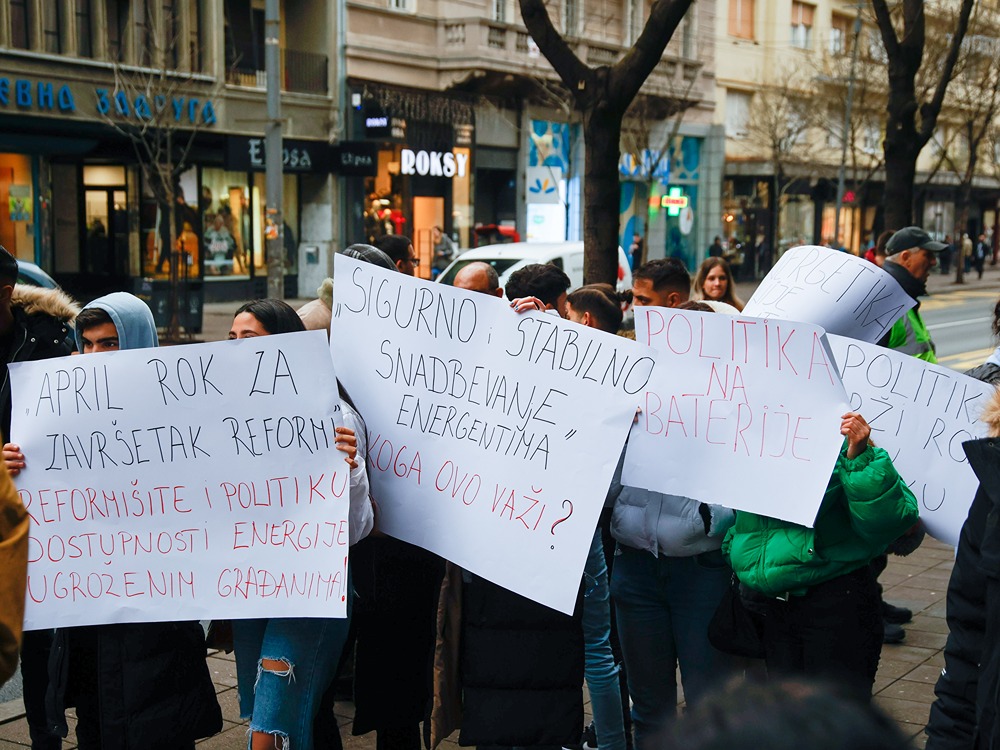 ЕВНА ЗАДУГА
ROKSY
„APRIL ROK ZA
ZAVRŠETAK REFORMI"
REFORMIŠITE i POLITIKU
DOSTUPNOSTI ENERGIJE
UGROŽENIM GRAĐANIMA!
„SIGURNO i STABILNO
SNADBEVANJE
ENERGENTIMA"
KOGA OVO VAŽI?
POLITIKA
NA
BATERIJE
RGETIKA
POLITIK
RŽI RO